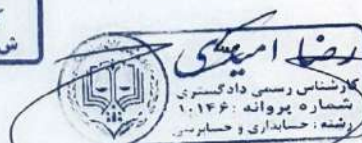 رضا
کارشناس رسمی دادگستری
شماره پروانه : ۱۰۱۴۶
رشته : حسابداری و حسابرسی